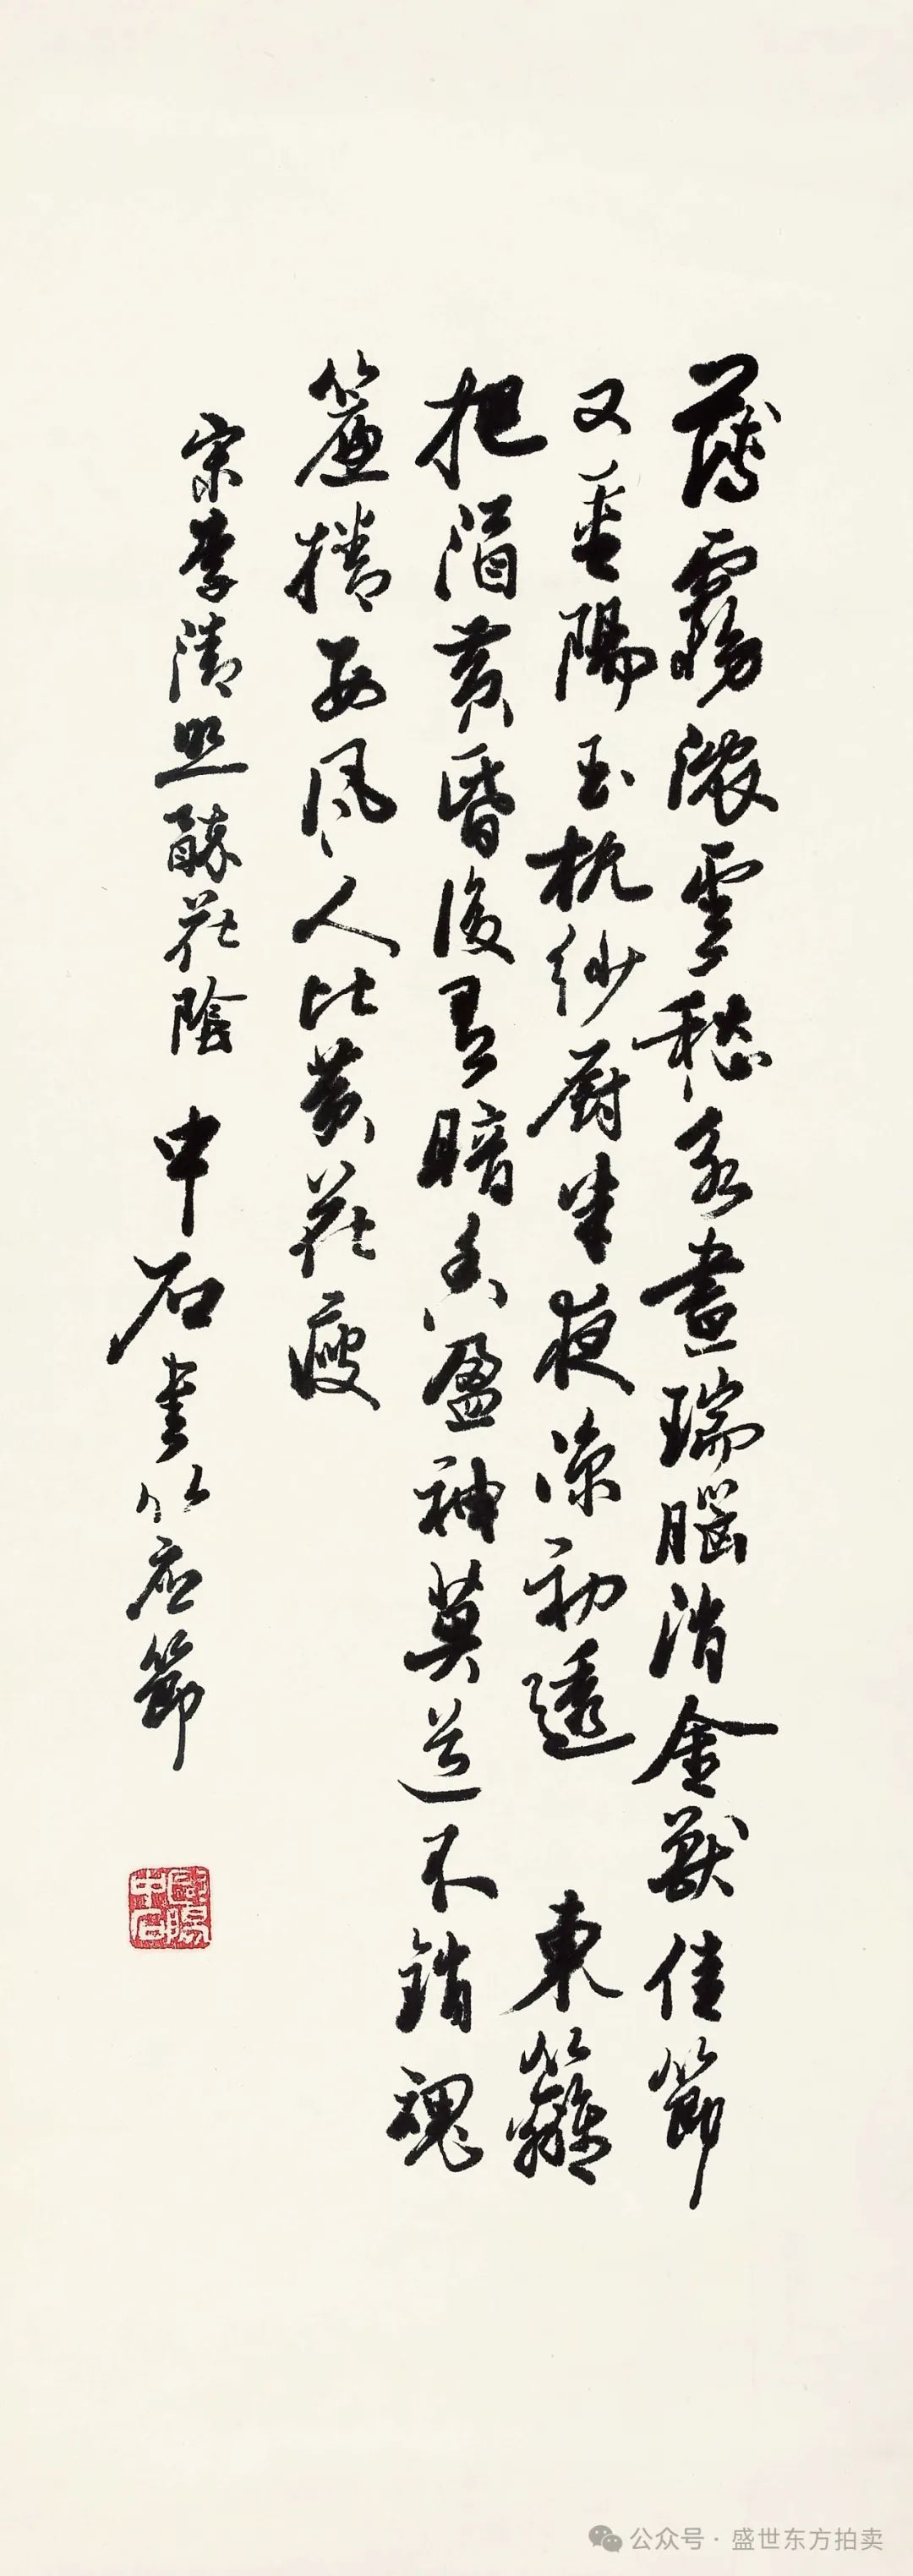 薄霧濃雲愁永晝瑞腦消金獸佳節
又重陽玉枕紗厨半夜涼初透 東籬
把酒黄昏後有暗香盈袖莫道不銷魂
簾捲西風人比黄花瘦
宋李清照醉花陰 中石書以應節
歐陽中石
公众号·盛世东方拍卖